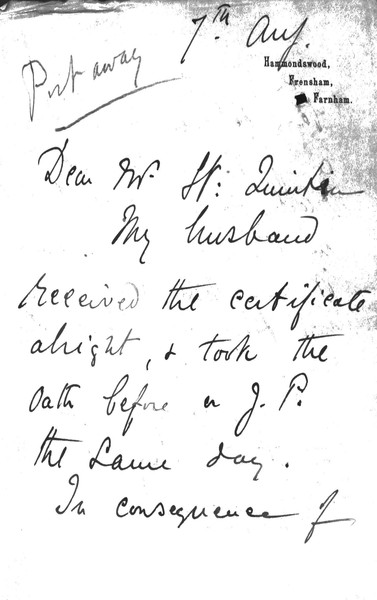 Put away
7th Aug.
Hammondswood,
Frensham,
Farnham.
Dear Mr St: Quintin
My husband
received the certificate
alright, & took the
oath before a J. P.
the same day.
In consequence of